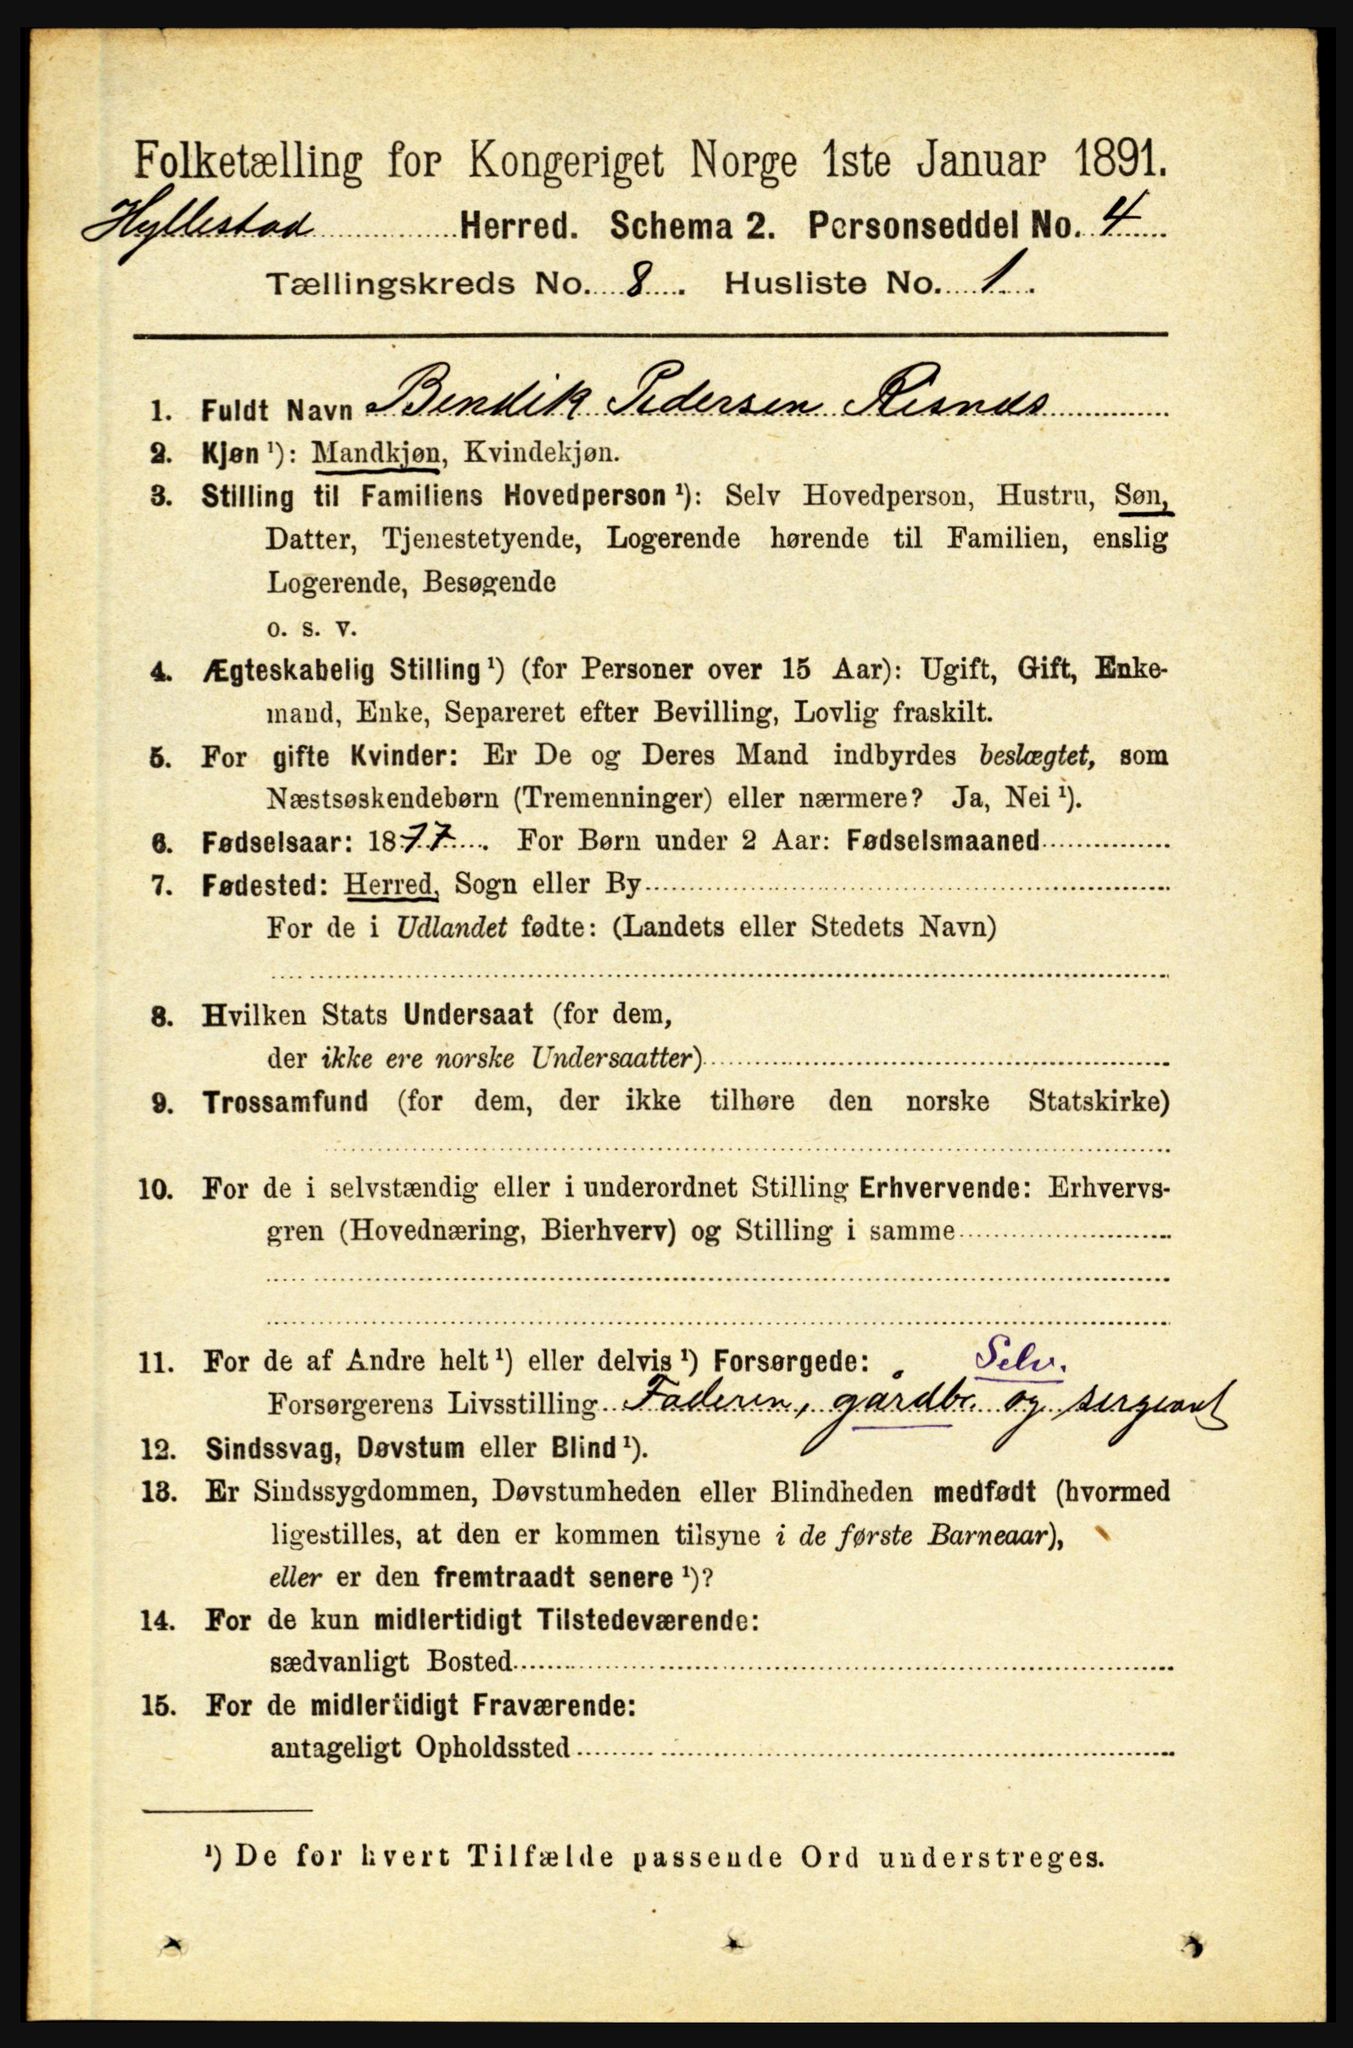 Folketælling for Kongeriget Norge 1ste Januar 1891.
Hyllestad Herred. Schema 2. Personseddel No. 4
Tællingskreds No. 8. Husliste No. 1.
1. Fuldt Navn Bendik Pedersen Risnæs
2. Kjøn ¹): Mandkjøn, Kvindekjøn.
3. Stilling til Familiens Hovedperson ¹): Selv Hovedperson, Hustru, Søn,
Datter, Tjenestetyende, Logerende hørende til Familien, enslig
Logerende, Besøgende
o. s. v.
4. Ægteskabelig Stilling ¹) (for Personer over 15 Aar): Ugift, Gift, Enke-
mand, Enke, Separeret efter Bevilling, Lovlig fraskilt.
5. For gifte Kvinder: Er De og Deres Mand indbyrdes beslægtet, som
Næstsøskendebørn (Tremenninger) eller nærmere? Ja, Nei ¹).
6. Fødselsaar: 1877. For Børn under 2 Aar: Fødselsmaaned
7. Fødested: Herred, Sogn eller By
For de i Udlandet fødte: (Landets eller Stedets Navn)
8. Hvilken Stats Undersaat (for dem,
der ikke ere norske Undersaatter)
9. Trossamfund (for dem, der ikke tilhøre den norske Statskirke)
10. For de i selvstændig eller i underordnet Stilling Erhvervende: Erhvervs-
gren (Hovednæring, Bierhverv) og Stilling i samme
11. For de af Andre helt ¹) eller delvis ¹) Forsørgede: Selv.
Forsørgerens Livsstilling Faderen, gårdbr. og sergeant
12. Sindssvag, Døvstum eller Blind ¹).
13. Er Sindssygdommen, Døvstumheden eller Blindheden medfødt (hvormed
ligestilles, at den er kommen tilsyne i de første Barneaar),
eller er den fremtraadt senere ¹)?
14. For de kun midlertidigt Tilstedeværende:
sædvanligt Bosted
15. For de midlertidigt Fraværende:
antageligt Opholdssted
¹) De for hvert Tilfælde passende Ord understreges.